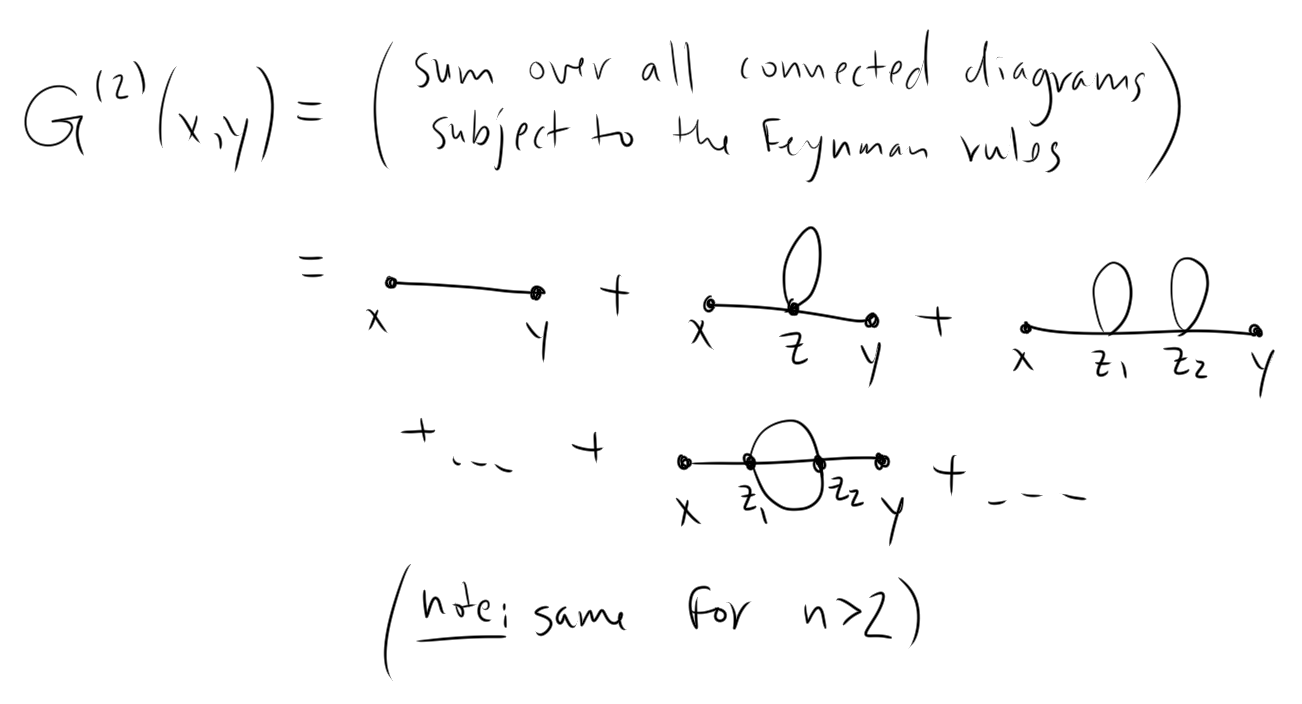 G^(2)(x,y) = ( sum over all connected diagrams
subject to the Feynman rules )
= x y + x z y + x z₁ z₂ y
+ --- + x z₁ z₂ y + ---
(note: same for n>2)